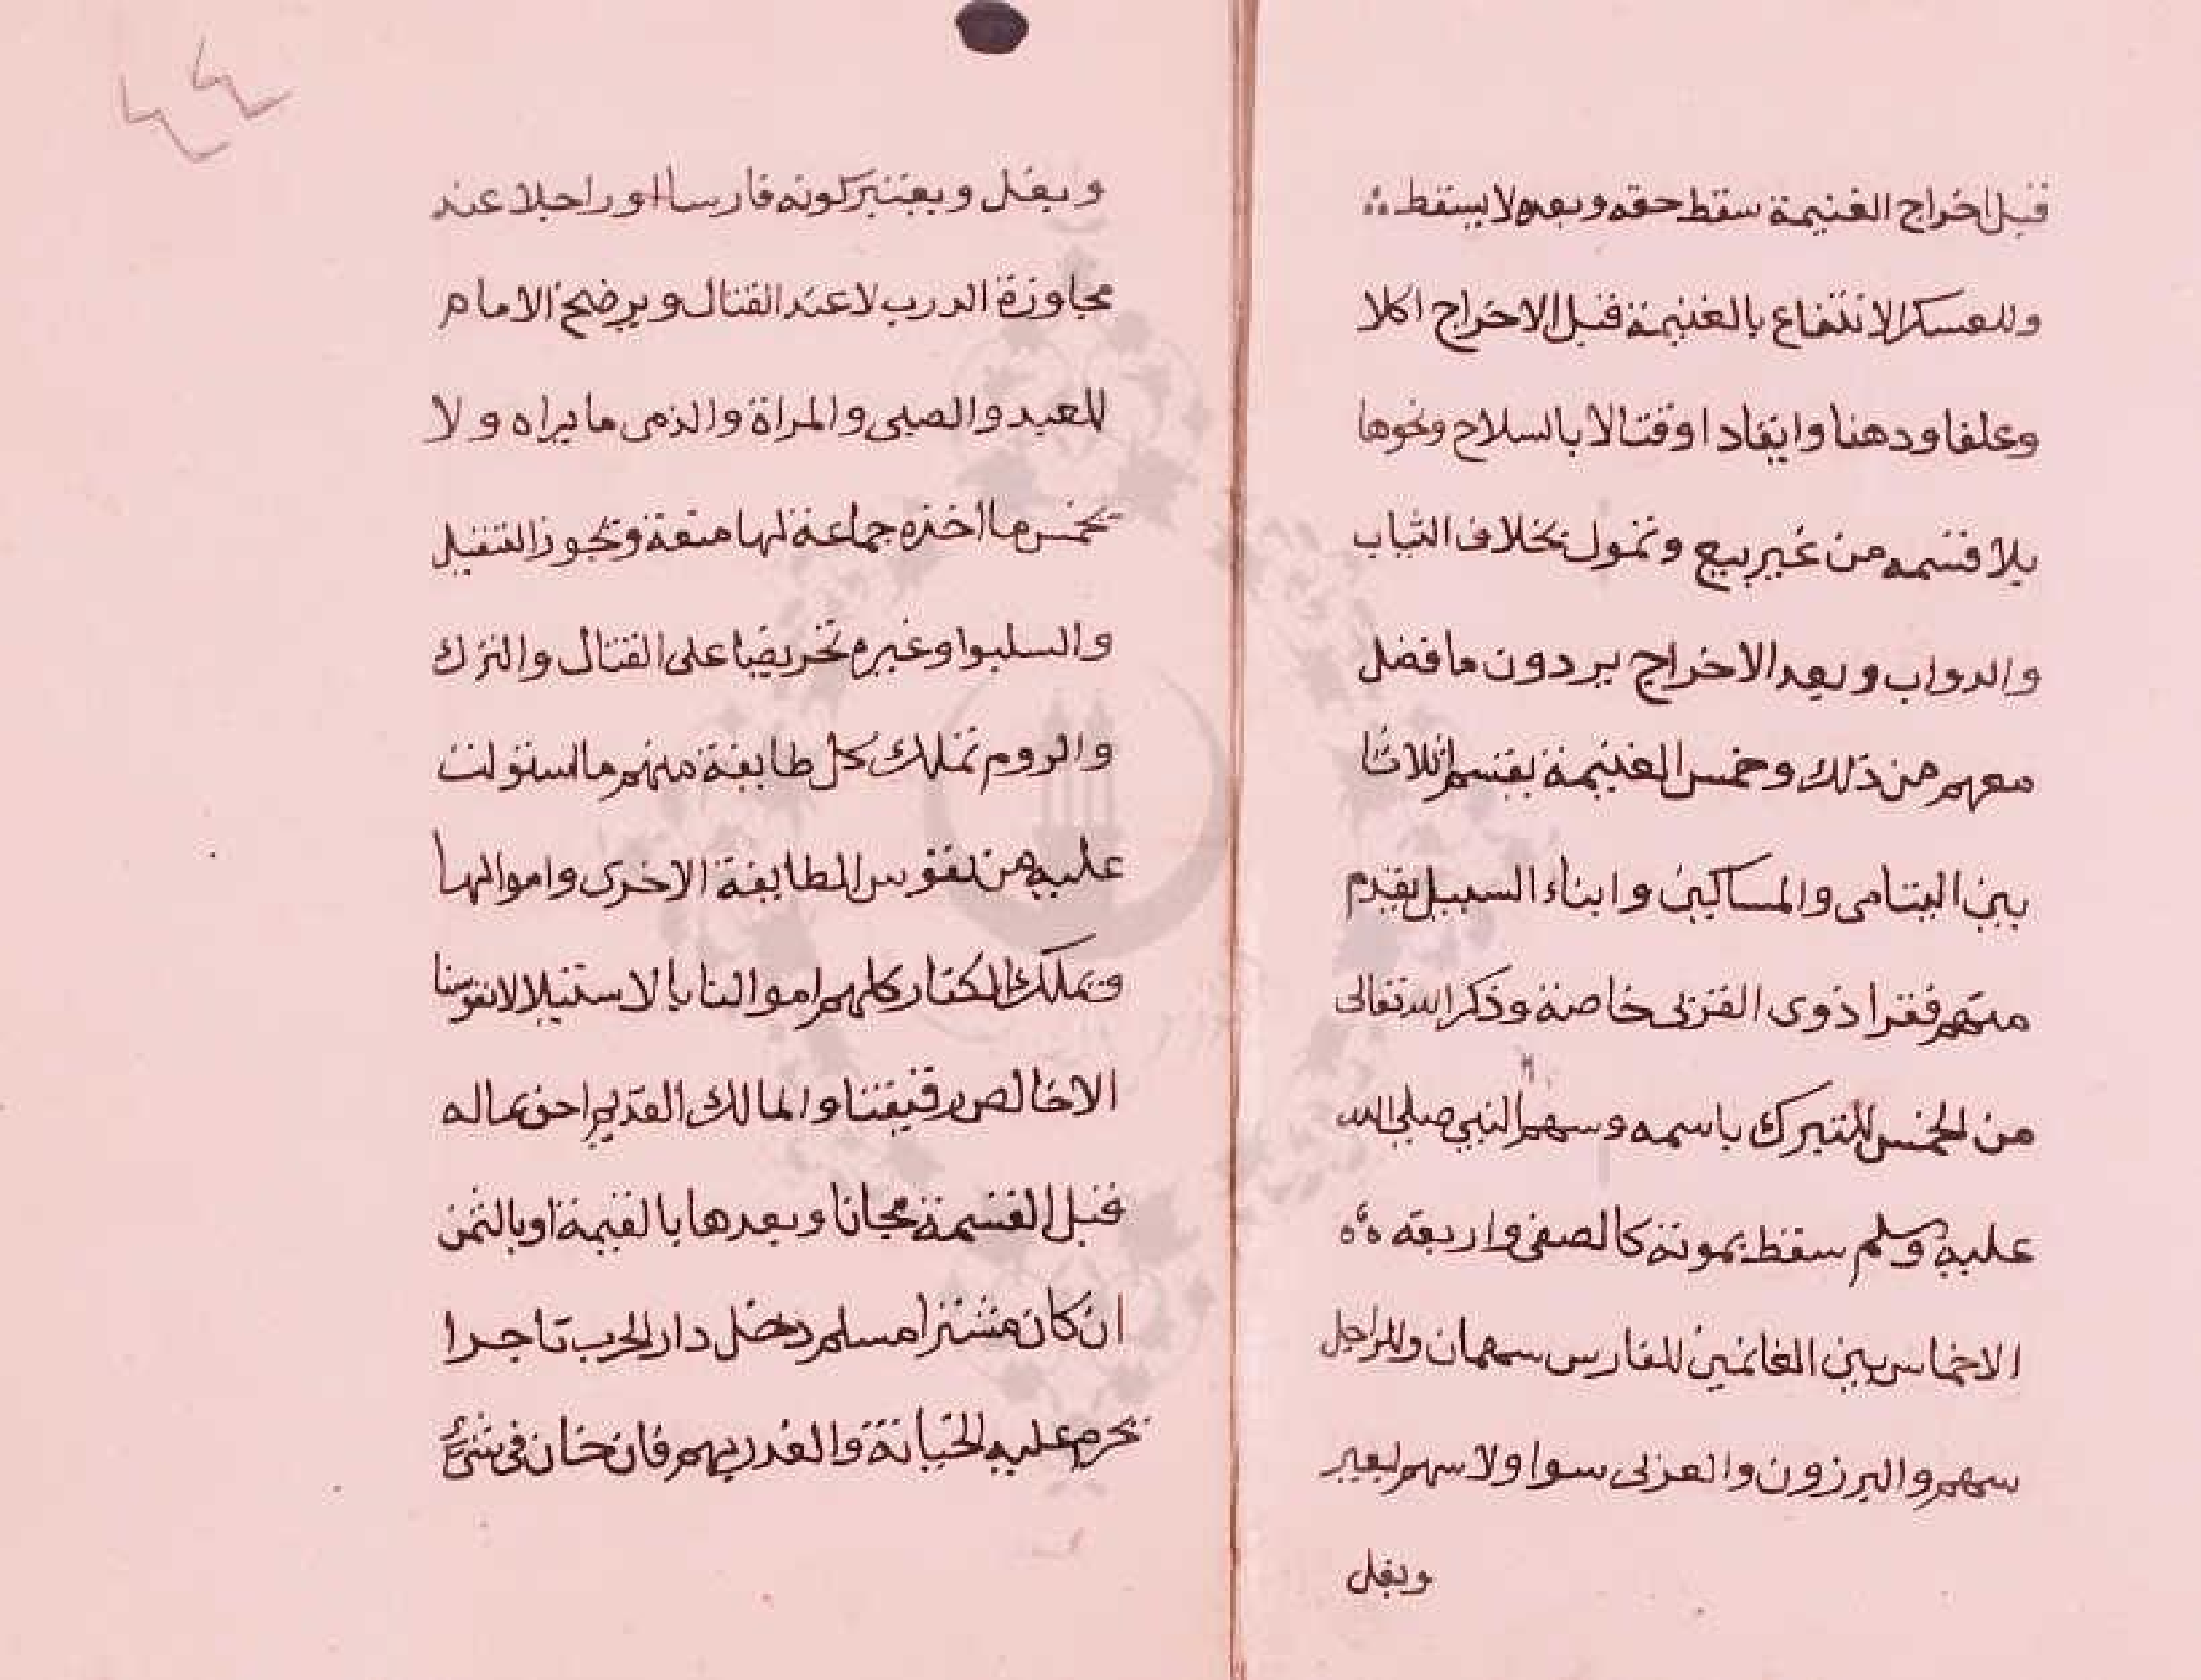 قبل اخراج الغنيمة سقط حقه وبعده لا يسقط
وللعسكر الانتفاع بالغنيمة قبل الاخراج اكلا
وعلفا ودهنا وايقادا وقتالا بالسلاح ونحوها
بلا قسمه من غير بيع وتمول بخلاف الثياب
والدواب وبعد الاخراج يردون ما فضل
معهم من ذلك وخمس الغنيمة يقسم اثلاثا
بين اليتامى والمساكين وابناء السبيل يقدم
منهم فقرا ذوى القربى خاصة وذكر الله تعالى
من الخمس للتبرك باسمه وسهم النبي صلى الله
عليه وسلم سقط بموته كالصفى واربعة
الاخماس بين الغانمين للفارس سهمان وللراجل
سهم والبرزون والعربى سوا ولا سهم لبعير
وبغل
وبغل ويعتبر كونه فارسا او راجلا عند
مجاوزة الدرب لا عند القتال ويرضخ الامام
للعبد والصبى والمراة والذمى ما يراه ولا
يخمس ما اخذه جماعة لها منعة ويجوز التنفيل
والسلبوا وغيره تحريضا على القتال والترك
والروم تملك كل طايفة منهم ما استولت
عليه من نفوس الطايفة الاخرى واموالها
وتملك الكفار كلهم اموالنا بالاستيلا لا نفوسنا
الا خالص رقيقنا والمالك القديم احق بماله
قبل القسمة مجانا وبعدها بالقيمة او بالثمن
ان كان مشترا مسلم دخل دار الحرب تاجرا
تحرم عليه الخيانة والغدر بهم فان خان فى شئ